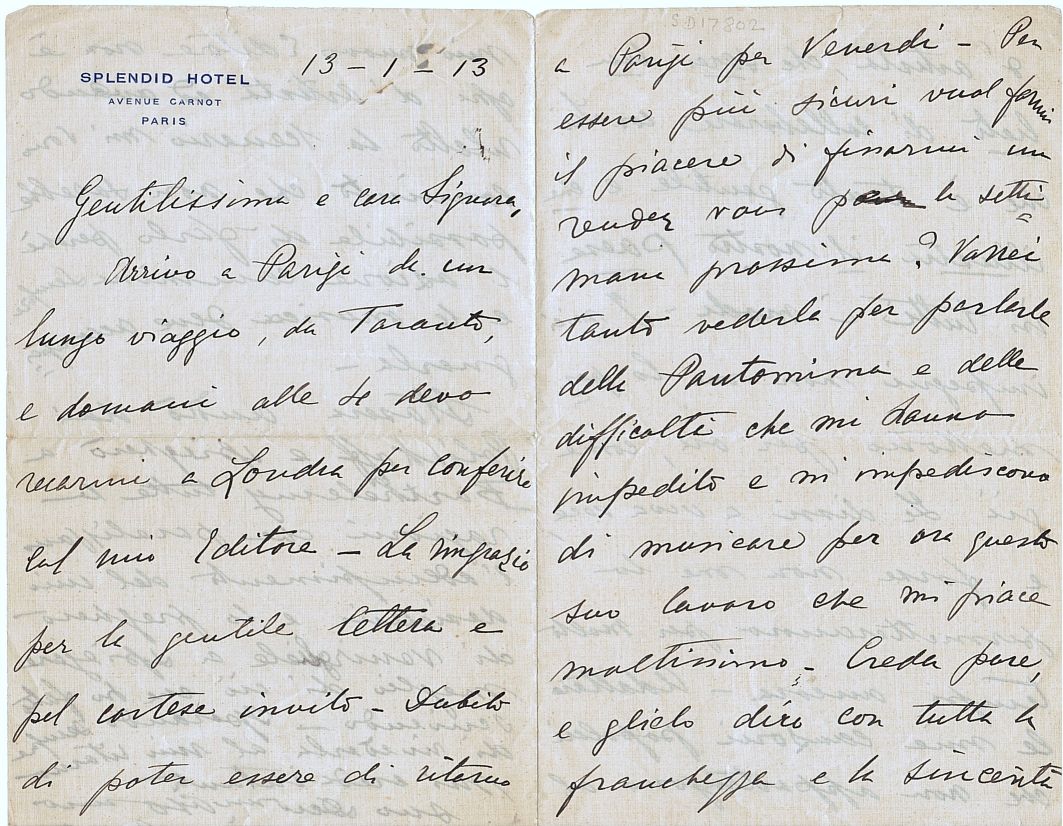 SPLENDID HOTEL
AVENUE CARNOT
PARIS
13-1-13
Gentilissima e cara Signora,
Arrivo a Parigi da un
lungo viaggio, da Taranto,
e domani alle 4 devo
recarmi a Londra per conferire
col mio Editore - La ringrazio
per la gentile lettera e
pel cortese invito - Dubito
di poter essere di ritorno
SD17802
a Parigi per Venerdì - Per
essere più sicuri vuol farmi
il piacere di fissarmi un
rendez vous la setti=
mana prossima? Vorrei
tanto vederla per parlarle
della Pantomima e delle
difficoltà che mi hanno
impedito e mi impediscono
di musicare per ora questo
suo lavoro che mi piace
moltissimo - Creda pure,
e glielo dirò con tutta la
franchezza e la sincerità